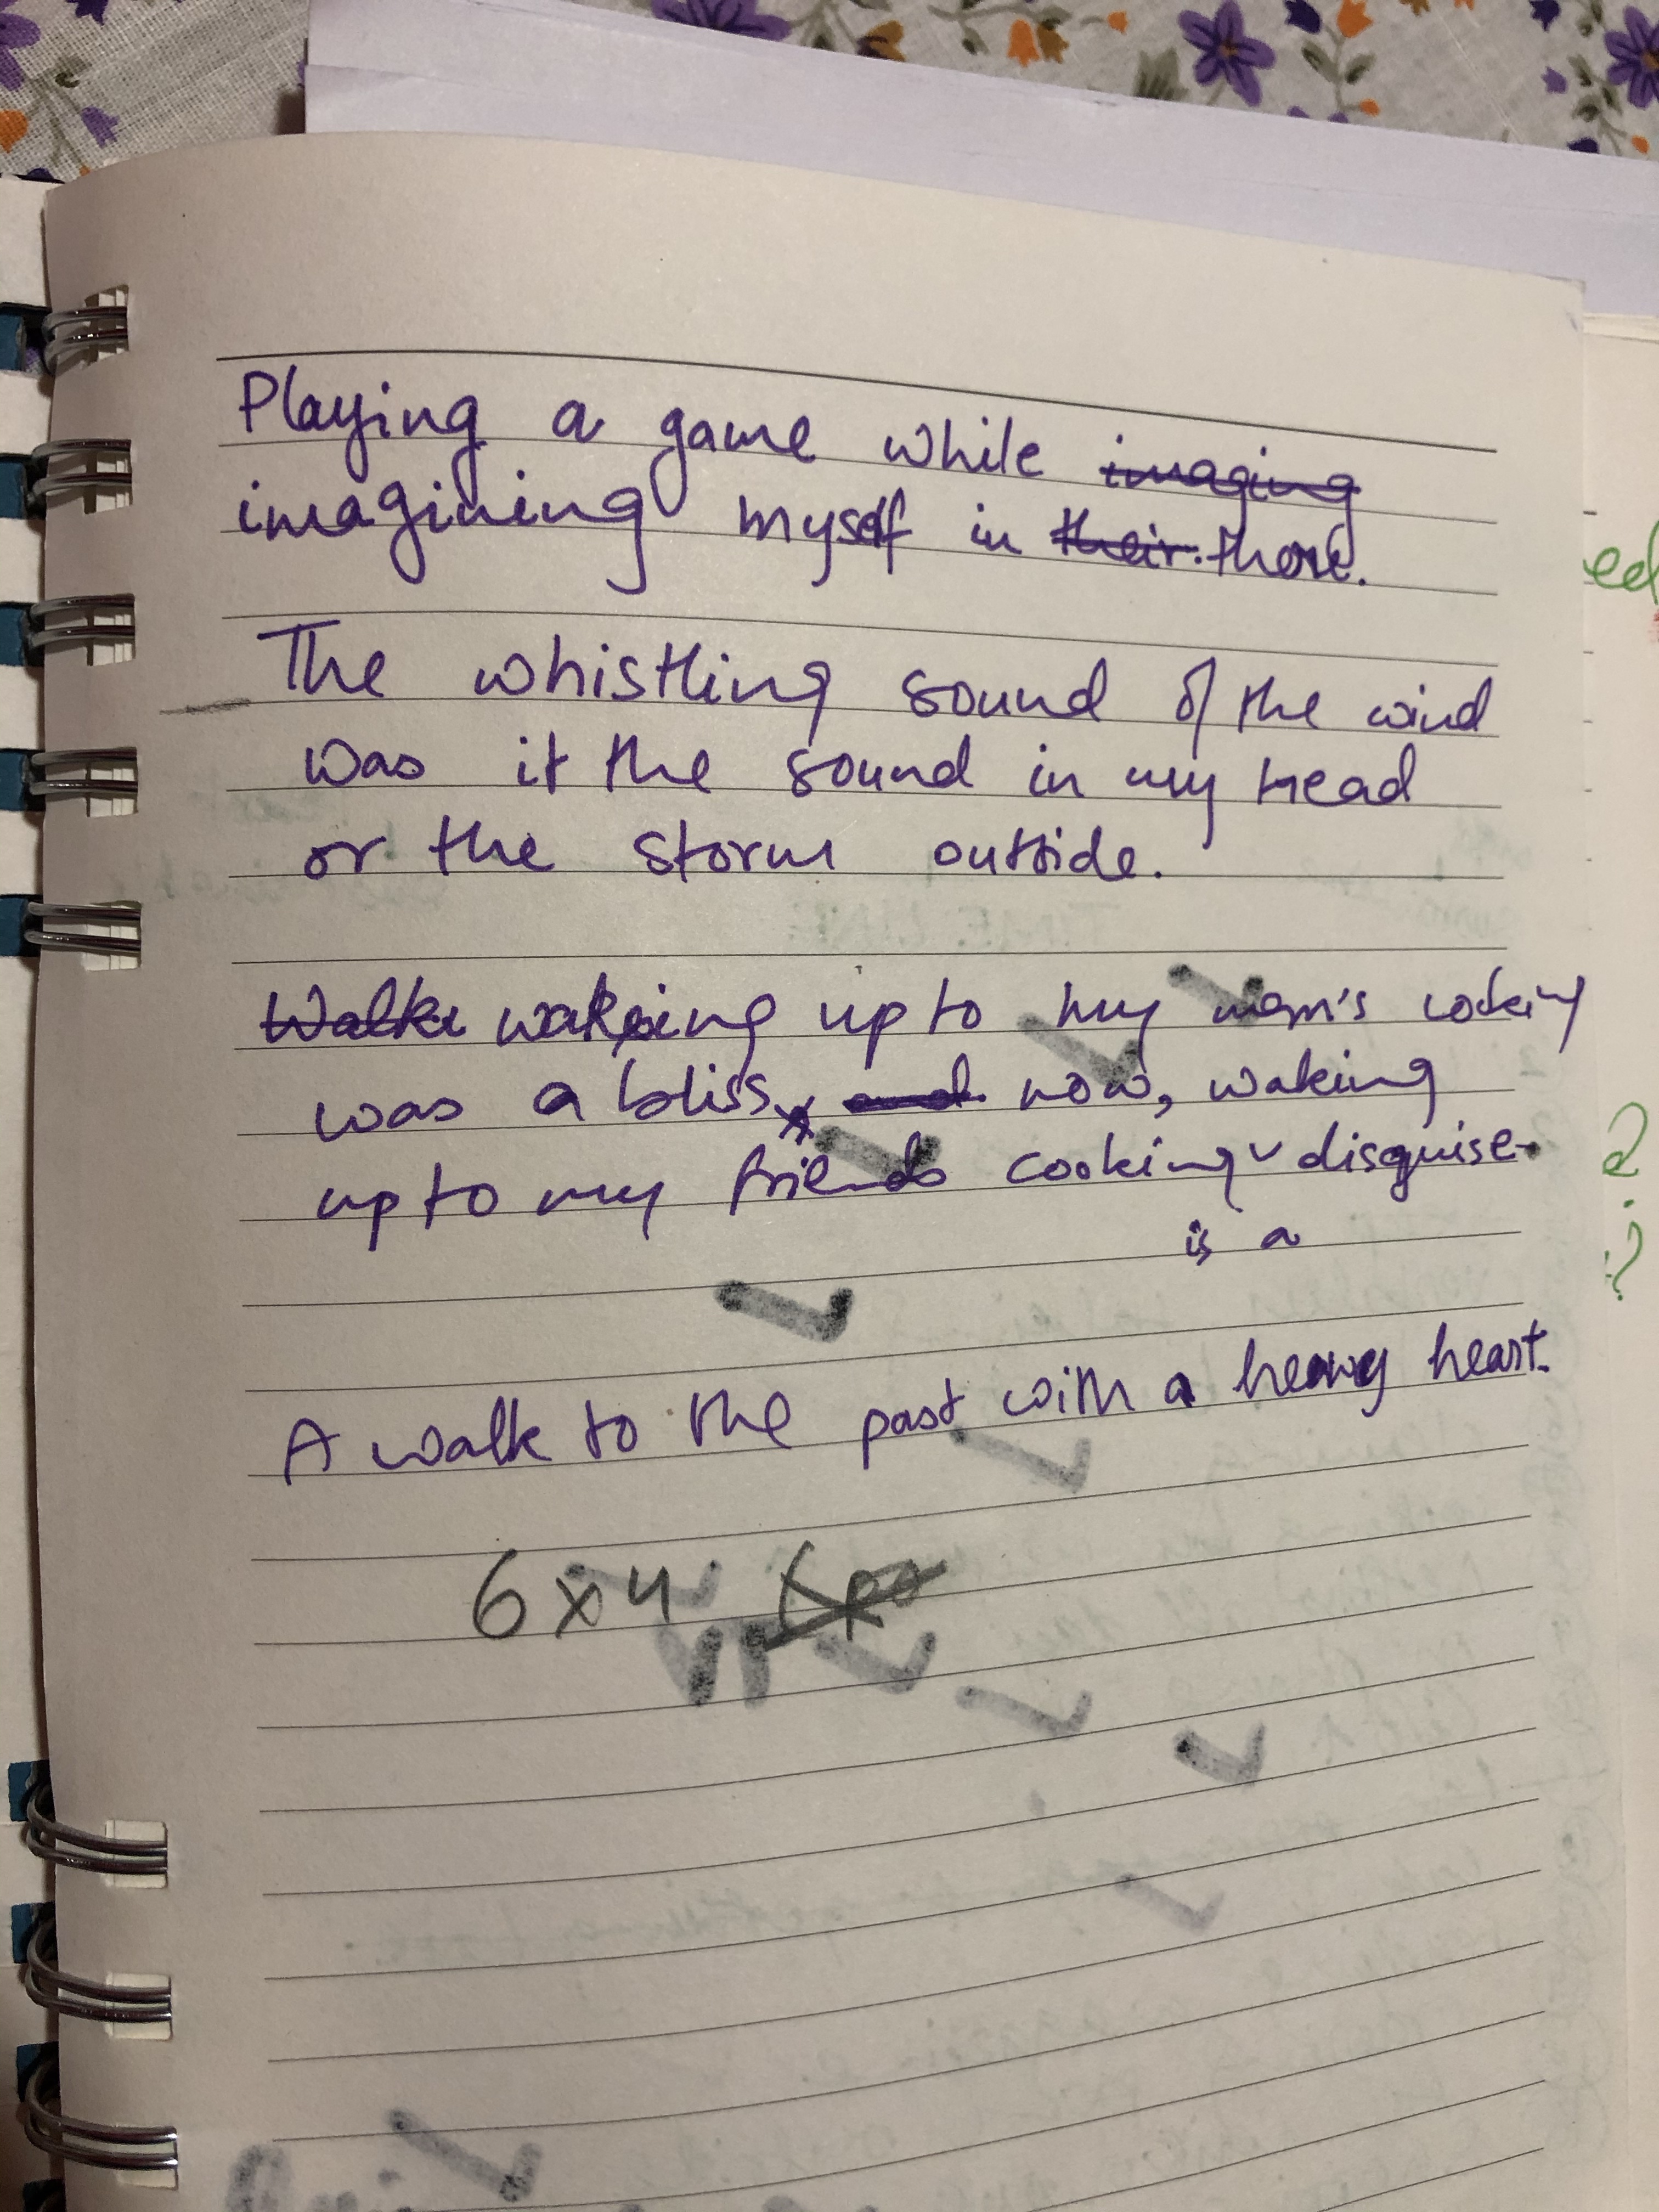 Playing a game while imaging
imagining myself in their there.
The whistling sound of the wind
was it the sound in my head
or the storm outside.
Walki waking up to my mom's cooking
was a bliss, and now, waking
up to my friends cooking ˅ disguise.
is a
A walk to the past with a heavy heart.
6x4
ed
TIME